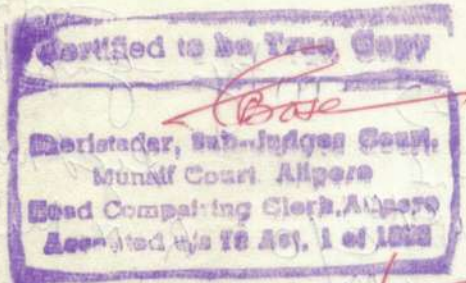 Certified to be True Copy
Bose
Sheristadar, Sub-Judges Court,
Munsif Court Alipore
Head Comparing Clerk, Alipore
u/s 76 Act, 1 of 1872